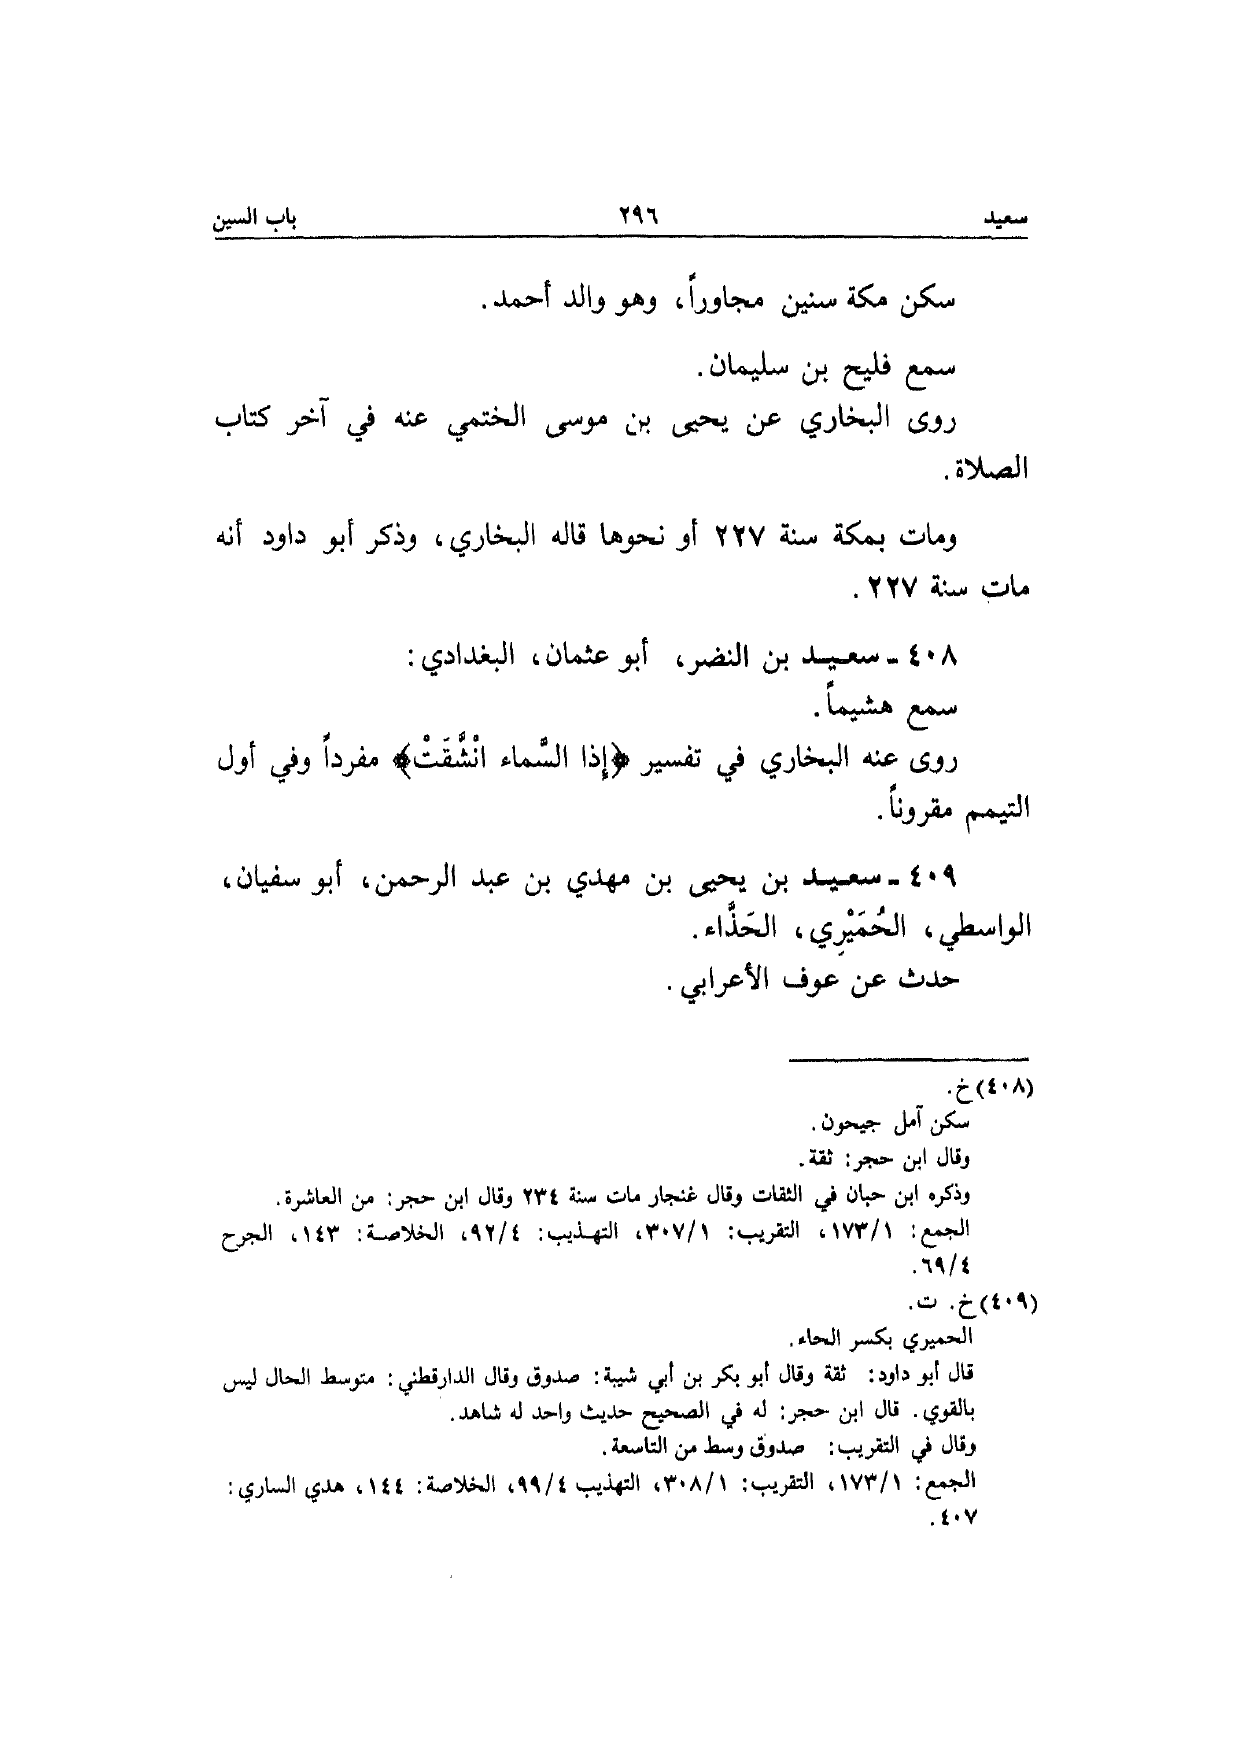 سعيد ٢٩٦ باب السين
سكن مكة سنين مجاوراً، وهو والد أحمد.
سمع فليح بن سليمان.
روى البخاري عن يحيى بن موسى الختمي عنه في آخر كتاب
الصلاة.
ومات بمكة سنة ٢٢٧ أو نحوها قاله البخاري، وذكر أبو داود أنه
مات سنة ٢٢٧.
٤٠٨ ـ سعيد بن النضر، أبو عثمان، البغدادي:
سمع هشيماً.
روى عنه البخاري في تفسير ﴿إذا السَّماء انْشَّقَتْ﴾ مفرداً وفي أول
التيمم مقروناً.
٤٠٩ ـ سعيد بن يحيى بن مهدي بن عبد الرحمن، أبو سفيان،
الواسطي، الحُمَيْرِي، الحَذَّاء.
حدث عن عوف الأعرابي.
(٤٠٨) خ.
سكن آمل جيحون.
وقال ابن حجر: ثقة.
وذكره ابن حبان في الثقات وقال غنجار مات سنة ٢٣٤ وقال ابن حجر: من العاشرة.
الجمع: ١/١٧٣، التقريب: ١/٣٠٧، التهذيب: ٤/٩٢، الخلاصة: ١٤٣، الجرح
٤/٦٩.
(٤٠٩) خ. ت.
الحميري بكسر الحاء.
قال أبو داود: ثقة وقال أبو بكر بن أبي شيبة: صدوق وقال الدارقطني: متوسط الحال ليس
بالقوي. قال ابن حجر: له في الصحيح حديث واحد له شاهد.
وقال في التقريب: صدوق وسط من التاسعة.
الجمع: ١/١٧٣، التقريب: ١/٣٠٨، التهذيب ٤/٩٩، الخلاصة: ١٤٤، هدي الساري:
٤٠٧.